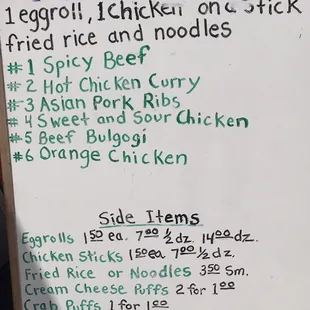 1 eggroll, 1 chicken on a stick
fried rice and noodles
#1 Spicy Beef
#2 Hot Chicken Curry
#3 Asian Pork Ribs
#4 Sweet and Sour Chicken
#5 Beef Bulgogi
#6 Orange Chicken
Side Items
Eggrolls 1 50 ea. 7 00 1/2 dz. 14 00 dz.
Chicken Sticks 1 50 ea 7 00 1/2 dz.
Fried Rice or Noodles 3 50 Sm.
Cream Cheese Puffs 2 for 1 00
Crab Puffs 1 for 1 00